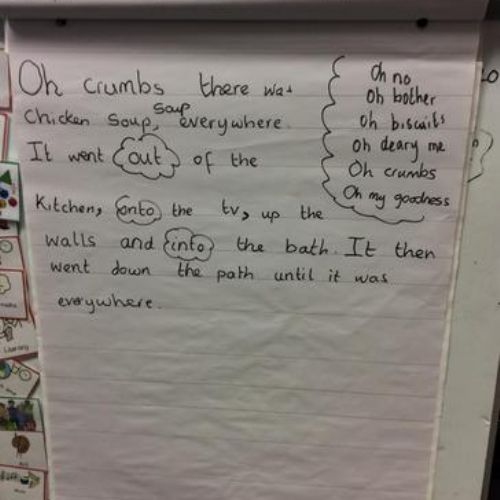 Oh crumbs there was
Chicken Soup, soup everywhere.
It went out of the
Kitchen, onto the tv, up the
walls and into the bath. It then
went down the path until it was
everywhere.
Oh no
Oh bother
Oh biscuits
Oh deary me
Oh crumbs
Oh my goodness